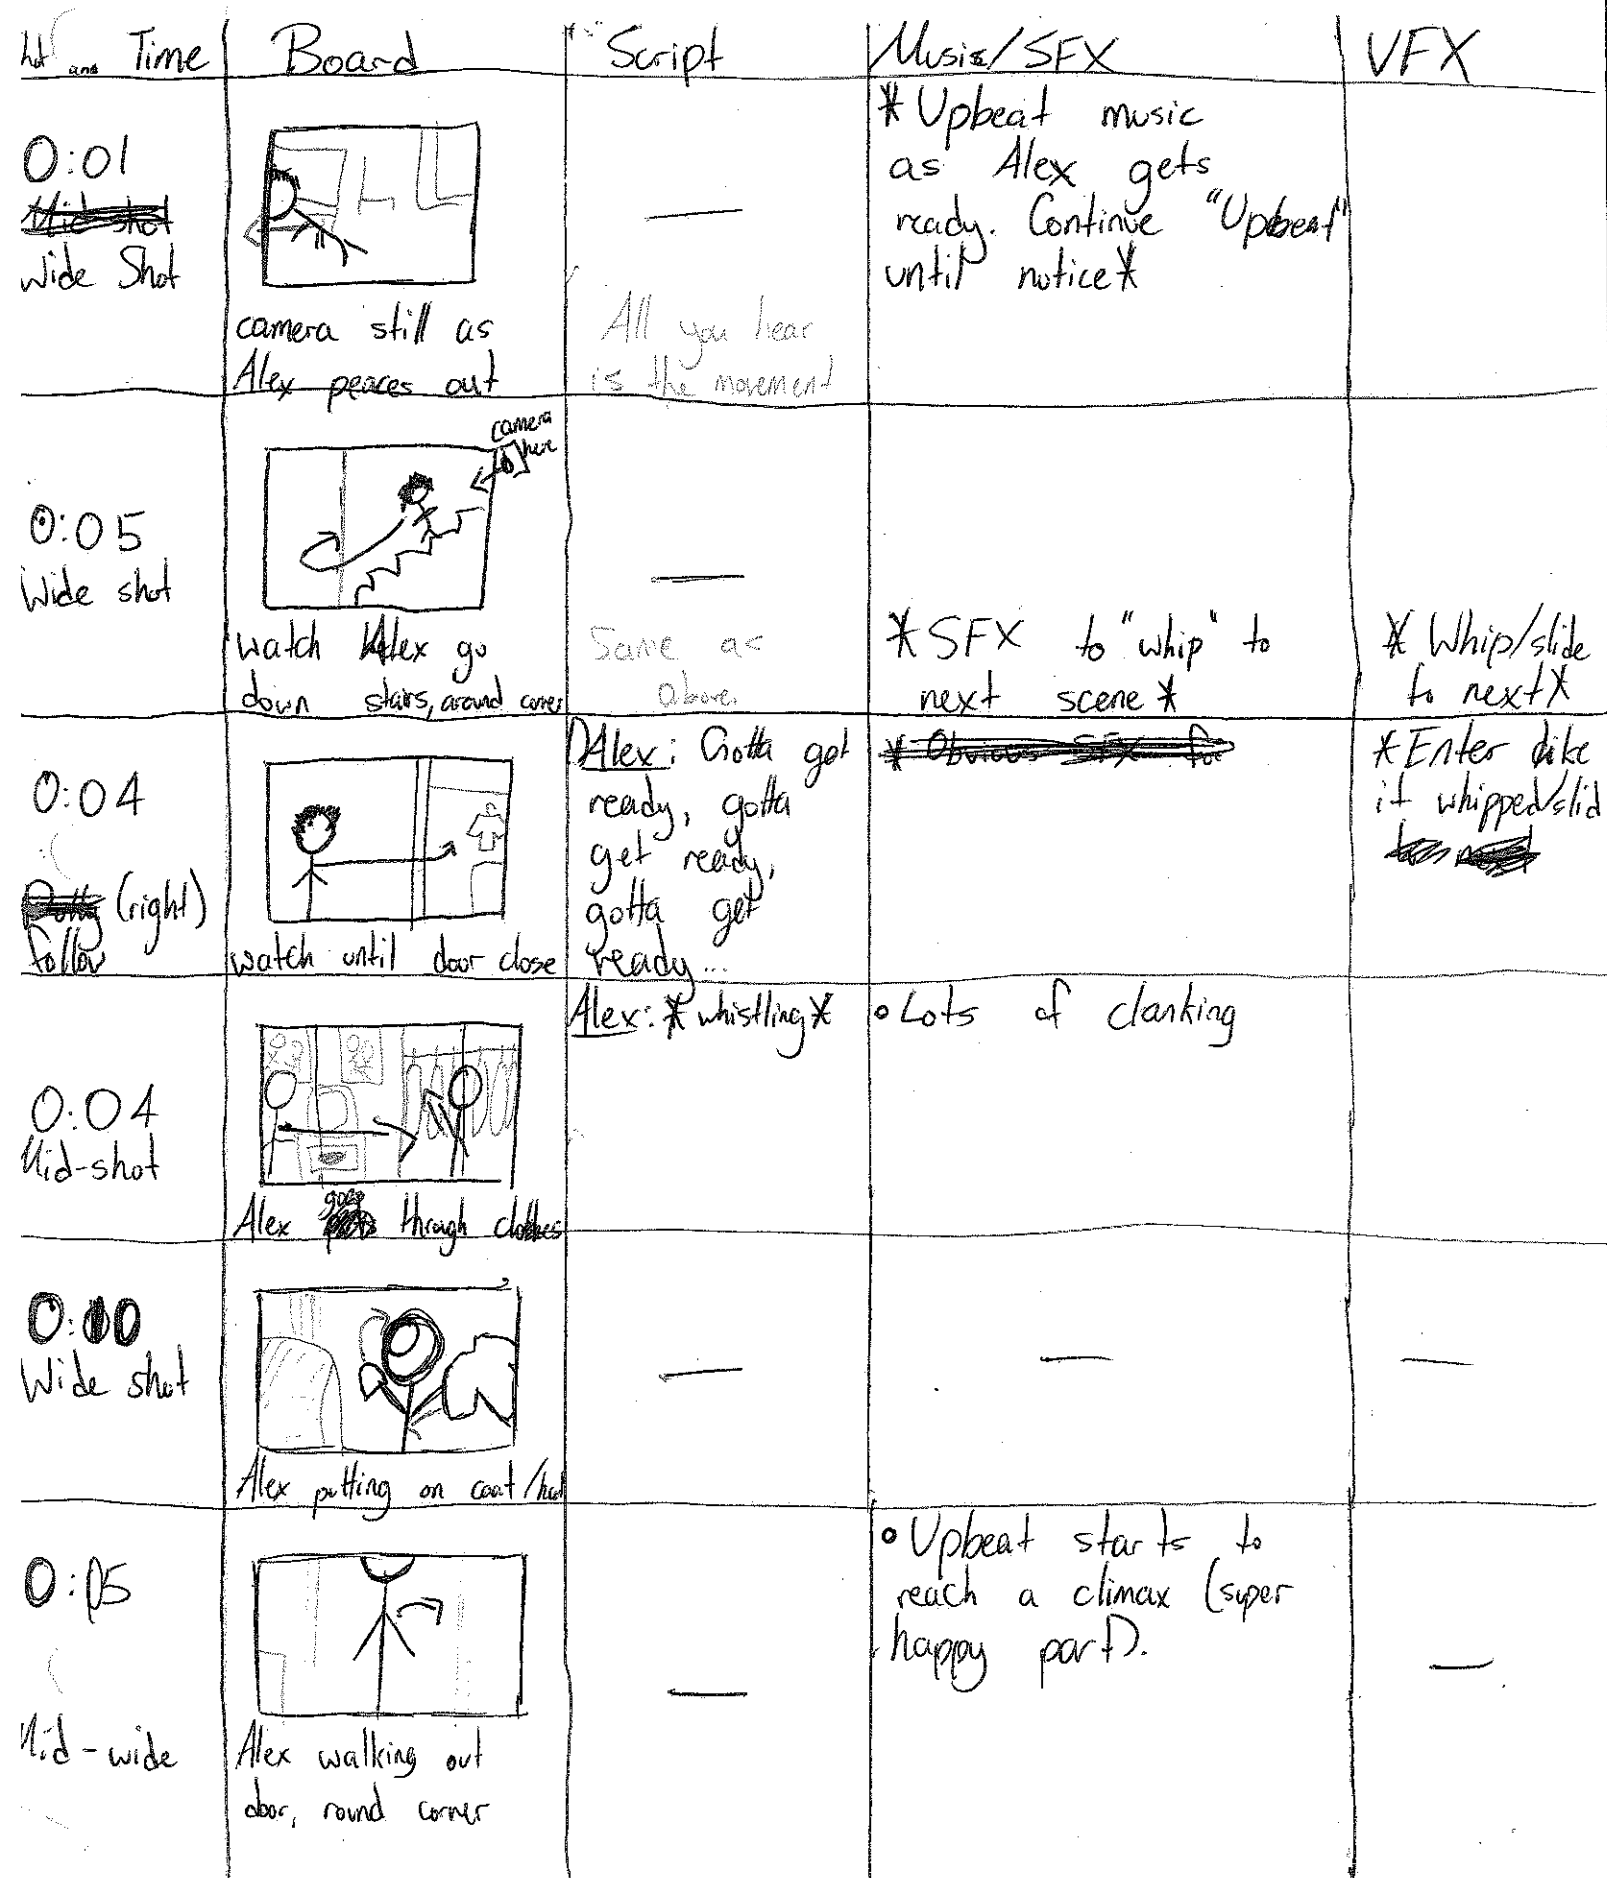 hot and Time Board Script Music/SFX VFX
0:01
Mid-shot
Wide Shot
camera still as
Alex peaces out
—
All you hear
is the movement
* Upbeat music
as Alex gets
ready. Continue "Upbeat"
until notice *
0:05
Wide shot
camera
here
watch Alex go
down stairs, around corner
—
Same as
above.
* SFX to "whip" to
next scene *
* Whip/slide
to next *
0:04
(right)
follow
watch until door close
Alex: Gotta get
ready, gotta
get ready,
gotta get
ready...
* Obvious SFX for
* Enter like
it whipped/slid
0:04
Mid-shot
Alex goes through clothes
Alex: * whistling *
• Lots of clanking
0:10
Wide shot
Alex putting on coat/hat
—
—
—
0:05
Mid-wide
Alex walking out
door, round corner
—
• Upbeat starts to
reach a climax (super
happy part).
—